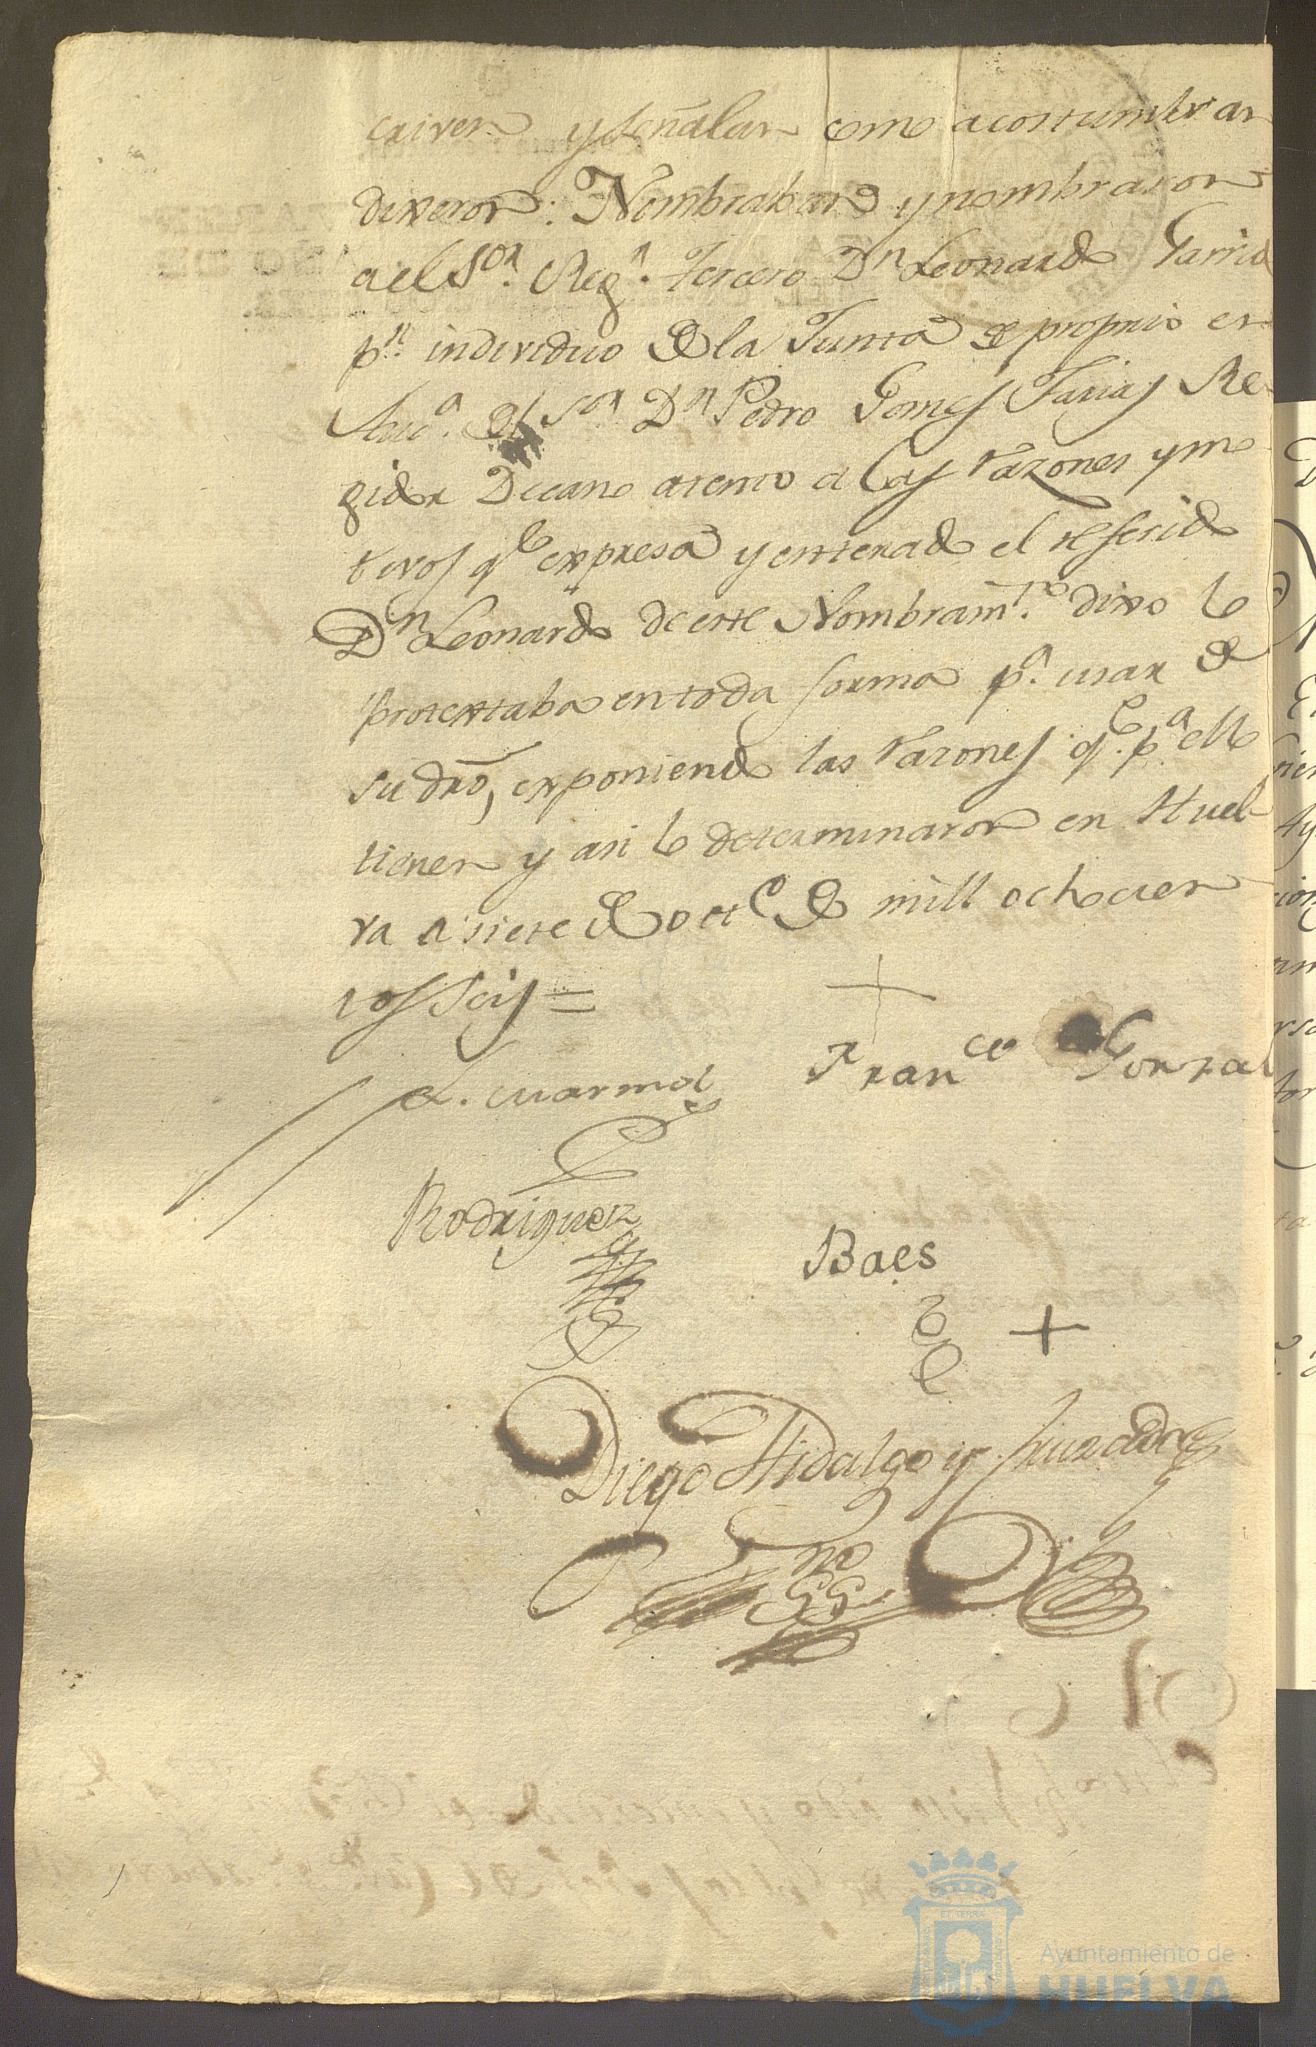 criven y señalan como acostumbran
dixeron: Nombraban y nombraron
a el Sor. Regr. tercero Dn Leonardo Garrido
pr. individuo de la Junta de proprio en
lugr. del Sor Dn Pedro Gomes Farias Re-
gidor Decano atento a las razones y mo
tivos qe expresa y enterado el referido
Dn Leonardo de este Nombramto. dixo lo
protextaba en toda forma pa. usar de
su dro, exponiendo las razones qe. pa ello
tienen y asi lo determinaron en Huel
va a siete de octe de mill ochocien
tos seis =
Franco Gonzal
Rodriguez
Baes
Diego Hidalgo y
Ayuntamiento de
HUELVA